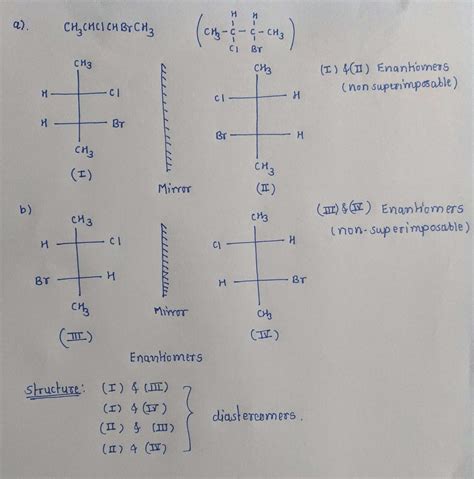 a). CH3CHClCHBrCH3
H H
(CH3-C-C-CH3)
Cl Br
CH3 CH3
H Cl Cl H
H Br Br H
CH3 CH3
(I) Mirror (II)
(I) & (II) Enantiomers
(non superimposable)
b)
CH3 CH3
H Cl Cl H
Br H H Br
CH3 CH3
(III) Mirror (IV)
(III) & (IV) Enantiomers
(non-superimposable)
Enantiomers
Structure: (I) & (III)
(I) & (IV)
(II) & (III)
(II) & (IV)
diastereomers.